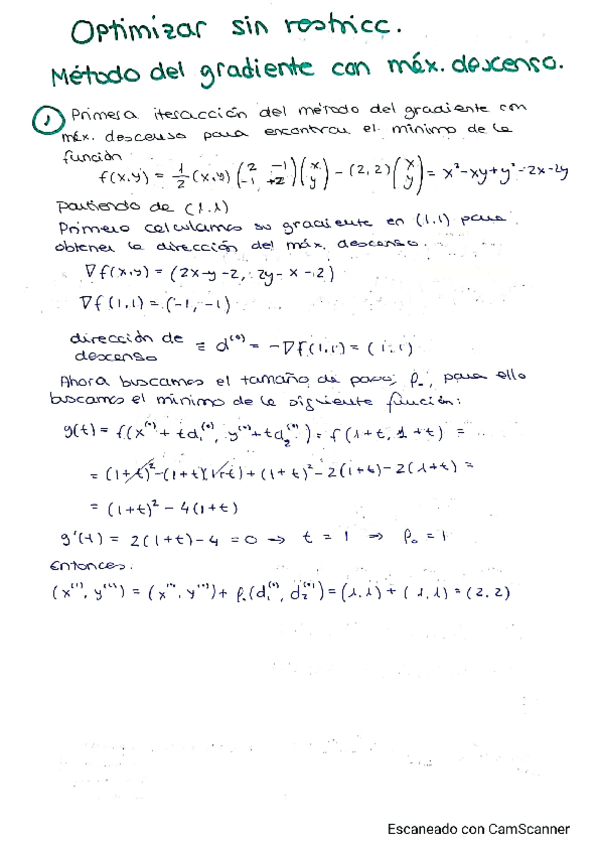 Optimizar sin restricc.
Método del gradiente con máx. descenso.
① Primera iteracción del método del gradiente con
máx. descenso para encontrar el mínimo de la
función
f(x,y) = 1/2 (x,y) (2 -1 -1 +2) (x y) - (2,2) (x y) = x² - xy + y² - 2x - 2y
partiendo de (1.1)
Primero calculamos su gradiente en (1,1) para
obtener la dirección del máx. descenso.
∇f(x,y) = (2x-y-2, 2y-x-2)
∇f(1,1) = (-1,-1)
dirección de
descenso ≡ d⁽⁰⁾ = -∇f(1,1) = (1,1)
Ahora buscamos el tamaño de paso, ρ₀, para ello
buscamos el mínimo de la siguiente función:
g(t) = f(x⁽⁰⁾ + td₁⁽⁰⁾, y⁽⁰⁾ + td₂⁽⁰⁾) = f(1+t, 1+t) =
= (1+t)² - (1+t)(1+t) + (1+t)² - 2(1+t) - 2(1+t) =
= (1+t)² - 4(1+t)
g'(t) = 2(1+t) - 4 = 0 → t = 1 ⇒ ρ₀ = 1
Entonces.
(x⁽¹⁾, y⁽¹⁾) = (x⁽⁰⁾, y⁽⁰⁾) + ρ₀(d₁⁽⁰⁾, d₂⁽⁰⁾) = (1,1) + (1,1) = (2,2)
Escaneado con CamScanner